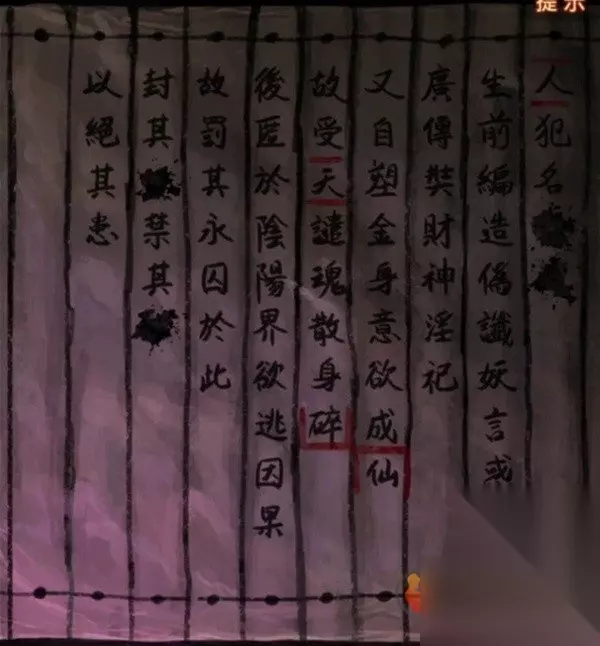 提示
人犯名
生前編造偽讖妖言或
廣傳奘財神淫祀
又自塑金身意欲成仙
故受天譴魂散身碎
後匿於陰陽界欲逃因果
故罰其永囚於此
封其禁其
以絕其患